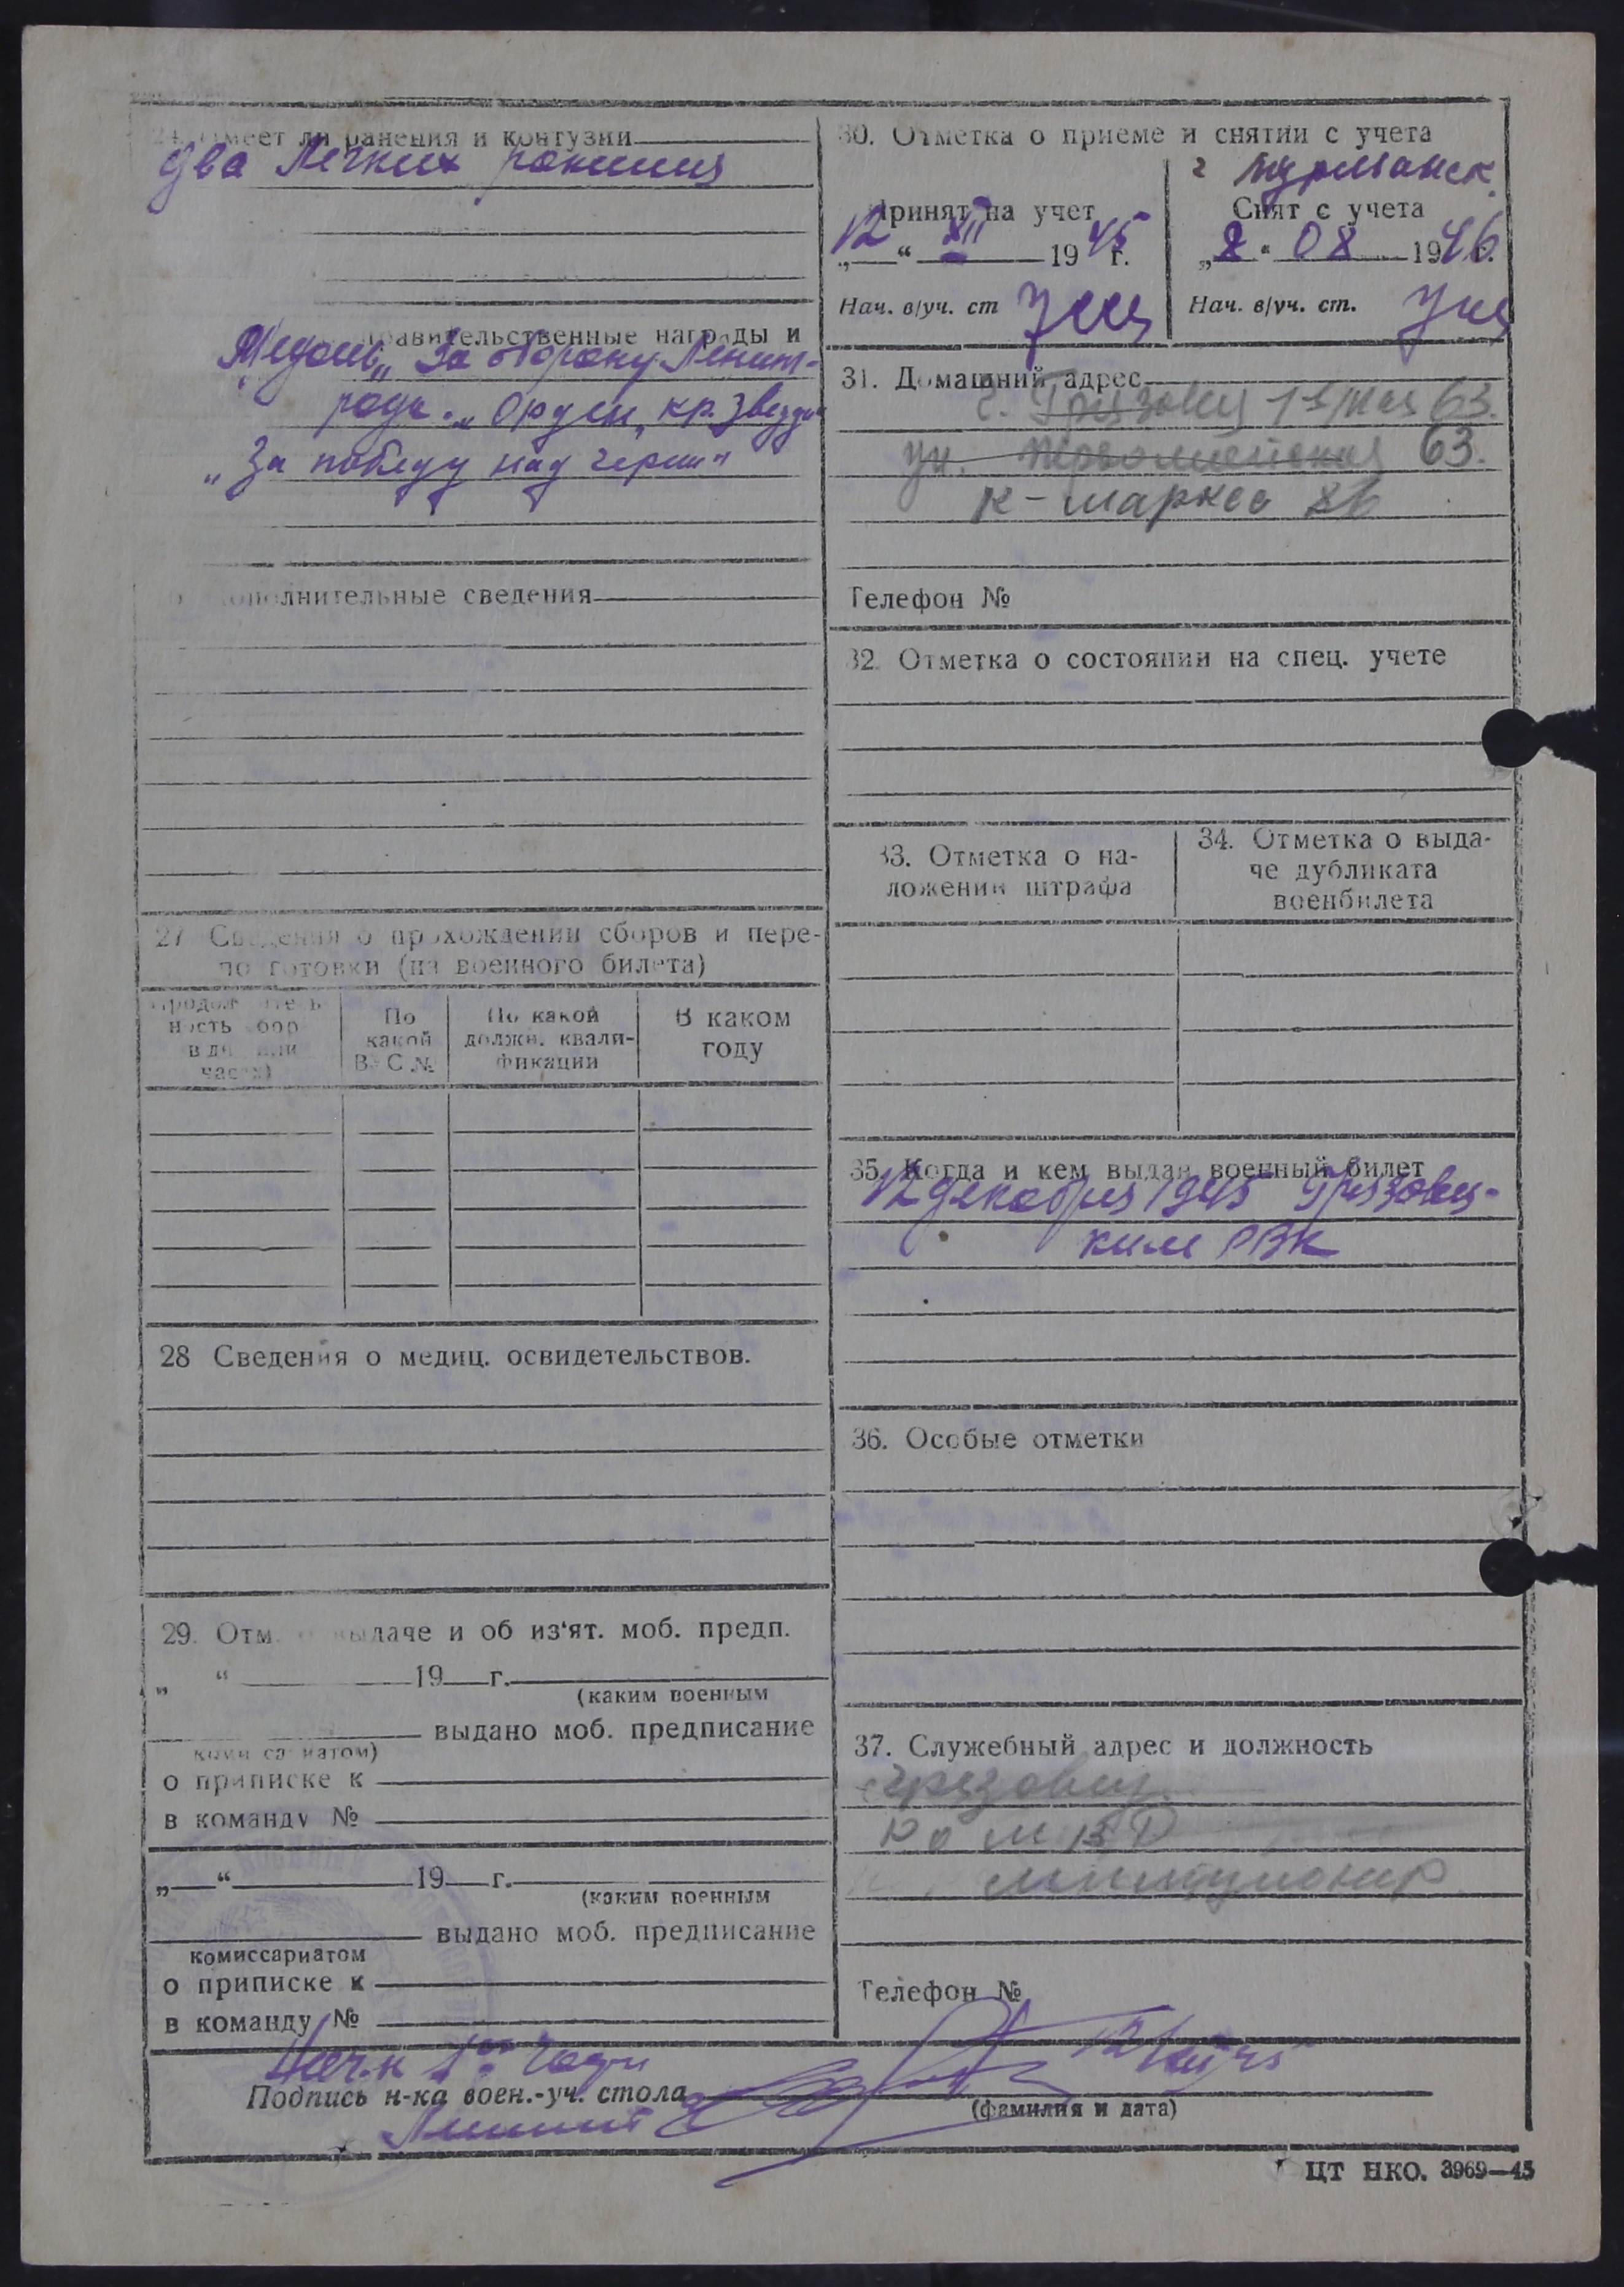 Имеет ли ранения и контузии
два Легких ранения
правительственные награды и
Медаль „За оборону Ленинг-
рода". „Орден „кр. Звезда"
„За победу над герм"
дополнительные сведения
27 Сведения о прохождении сборов и пере-
по готовки (из военного билета)
Продолжитель
ность сбор
в дн или
часах)
По
какой
ВУС №
По какой
должн. квали-
фикации
В каком
году
28 Сведения о медиц. освидетельствов.
29. Отм. о выдаче и об из‘ят. моб. предп.
„ “ 19 г.
(каким военным
выдано моб. предписание
комиссариатом)
о приписке к
в команду №
„ “ 19 г.
(каким военным
выдано моб. предписание
комиссариатом
о приписке к
в команду №
30. Отметка о приеме и снятии с учета
г Мурманск.
Принят на учет
„12“ XII 1945 г.
Нач. в/уч. ст
Снят с учета
„8“ 08 1946 г.
Нач. в/уч. ст.
31. Домашний адрес
г. Грязовец 1я Мая 63.
ул. Первомайская 63.
К-Маркса 86
Телефон №
32. Отметка о состоянии на спец. учете
33. Отметка о на-
ложении штрафа
34. Отметка о выда-
че дубликата
военбилета
35. Когда и кем выдан военный билет
12 декабря 1945 Грязовец-
ким РВК
36. Особые отметки
37. Служебный адрес и должность
Грязовец
Ро МВД
милиционер
Телефон №
Нач-к 1ой части
Подпись н-ка воен.-уч. стола
(фамилия и дата)
ЦТ НКО. 3969—45